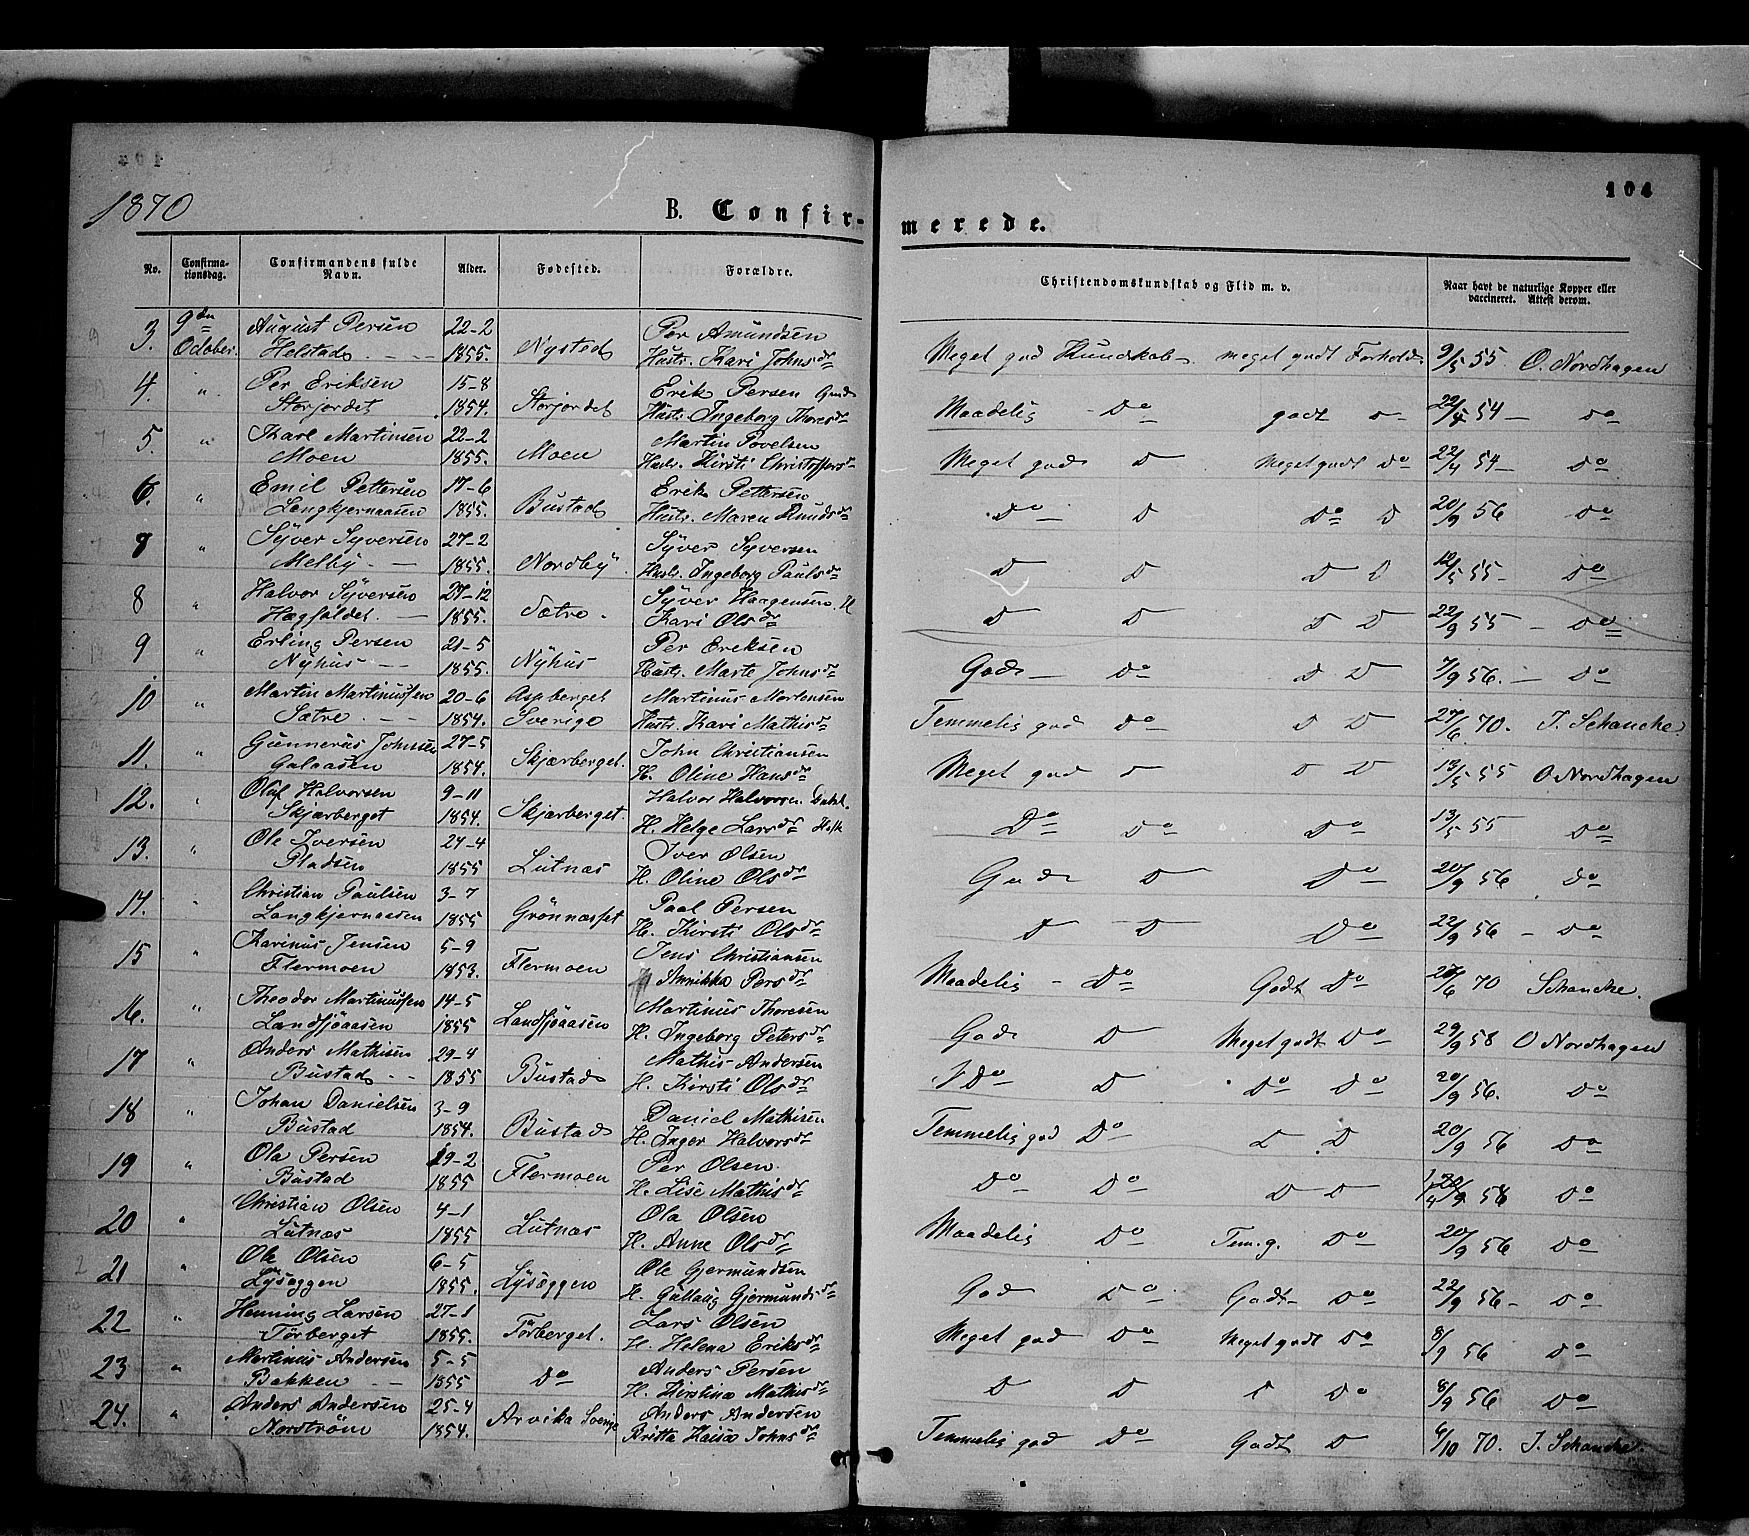 1870
104
B. Confir-
merede.
No. Confirmationsdag. Confirmandens fulde Navn. Alder. Fødested. Forældre. Christendomskundskab og Flid m. v. Naar havt de naturlige Kopper eller vaccineret. Attest derom.
3. 9de August Persen 22-2 Per Amundsen
October. Helstad 1855. Nysted Hustr. Kari Johnsdr Meget god Kundskab meget godt Forhold 9/5 55 O. Nordhagen
4. " Per Eriksen 15-8 Erik Persen
Storjordet 1854. Storjordet Hustr. Ingeborg Thoresdr Maadelig Do godt 22/4 54 Do
5. " Karl Martinsen 22-2 Martin Povelsen
Moen 1855. Moen Hustr. Kirsti Christoffersdr Meget god D Meget godt Do 22/4 54 Do
6. " Emil Pettersen 17-6 Erik Pettersen
Langkjernaasen 1855. Bustad Hustr. Maren Knudsdr Do D Do D 20/9 56 Do
7 " Syver Syversen 27-2 Syver Syversen
Melby 1855. Nordby Hustr. Ingeborg Paulsdr D D D D 12/5 55 Do
8 " Halvor Syversen 27-12 Syver Haagensen
Hagfaldet. 1855. Sætre Kari Olsdr D D D D 22/9 55 Do
9 " Erling Persen 21-5 Per Ereksen
Nyhus 1855. Nyhus Hustr. Marte Johnsdr God Do D D 7/9 56. Do
10 " Martin Martinussen 20-6 Aspberget Martinus Mortensen
Sætre 1854. Sverige Hustr. Kari Mathisdr Temmelig god Do D D 27/6 70. J. Schancke.
11. " Gunnerus Johnsen 27-5 John Christiansen
Galaasen 1854. Skjærberget. H. Oline Hansdr Meget god D D D 13/5 55 O Nordhagen
12. " Oluf Halvorsen 9-11 Halvor Halvorsen
Skjærberget 1854. Skjærberget H. Helge Larsdr Do Do Do 13/5 55 Do
13. " Ole Iversen 24-4 Iver Olsen
Pladsen 1855 Lutnæs H. Oline Olsdr God D Do 20/9 56 Do
14. " Christian Paulsen 3-7 Paal Persen
Langkjernaasen 1855 Grönnæsset H. Kirsti Olsdr D D Do 22/9 56 Do
15 " Karinus Jensen 5-9 Jens Christiansen
Flermoen 1853. Flermoen H. Annikka Persdr Maadelig Do Godt Do 27/6 70 Schancke.
16. " Theodor Martinussen 14-5 Martinus Thoresen
Landsjöaasen 1855 Landsjöaasen H. Ingeborg Petersdr God D Meget godt Do 29/9 58 O Nordhagen
17 " Anders Mathisen 29-4 Mathis Andersen
Bustad 1855 Bustad H. Kirsti Olsdr Do D Do Do 20/9 56. Do
18 " Johan Danielsen 3-9 Daniel Mathisen
Bustad 1854. Bustad H. Inger Halvorsdr Temmelig god Do D D 20/9 56 Do
19 " Ola Persen 19-2 Per Olsen
Bustad 1855 Flermoen H. Lise Mathisdr Do Do D D 58 Do
20 " Christian Olsen 4-1 Ola Olsen
Lutnæs 1855 Lutnæs H. Anne Olsdr Maadelig Do Tem. g. Do 20/9 56 Do
21 " Ole Olsen 6-5 Ole Gjermundsen
Lysæggen 1855. Lysæggen H. Gullaug Gjermundsdr God Do Godt Do 22/9 56 Do
22 " Henning Larsen 27-1 Lars Olsen
Törberget 1855. Törberget. H. Helena Eriksdr Meget god Do Meget godt Do 8/9 56 Do
23 " Martinus Andersen 5-5 Anders Persen
Bakken 1855 Do H. Kirstine Mathisdr D D D Do 8/9 56 Do
24. " Anders Andersen 25-4 Anders Andersen
Nordström 1854. Arvika Sverige Britta Kaisa Johnsdr Temmelig god Do Godt D 6/10 70. J. Schancke.